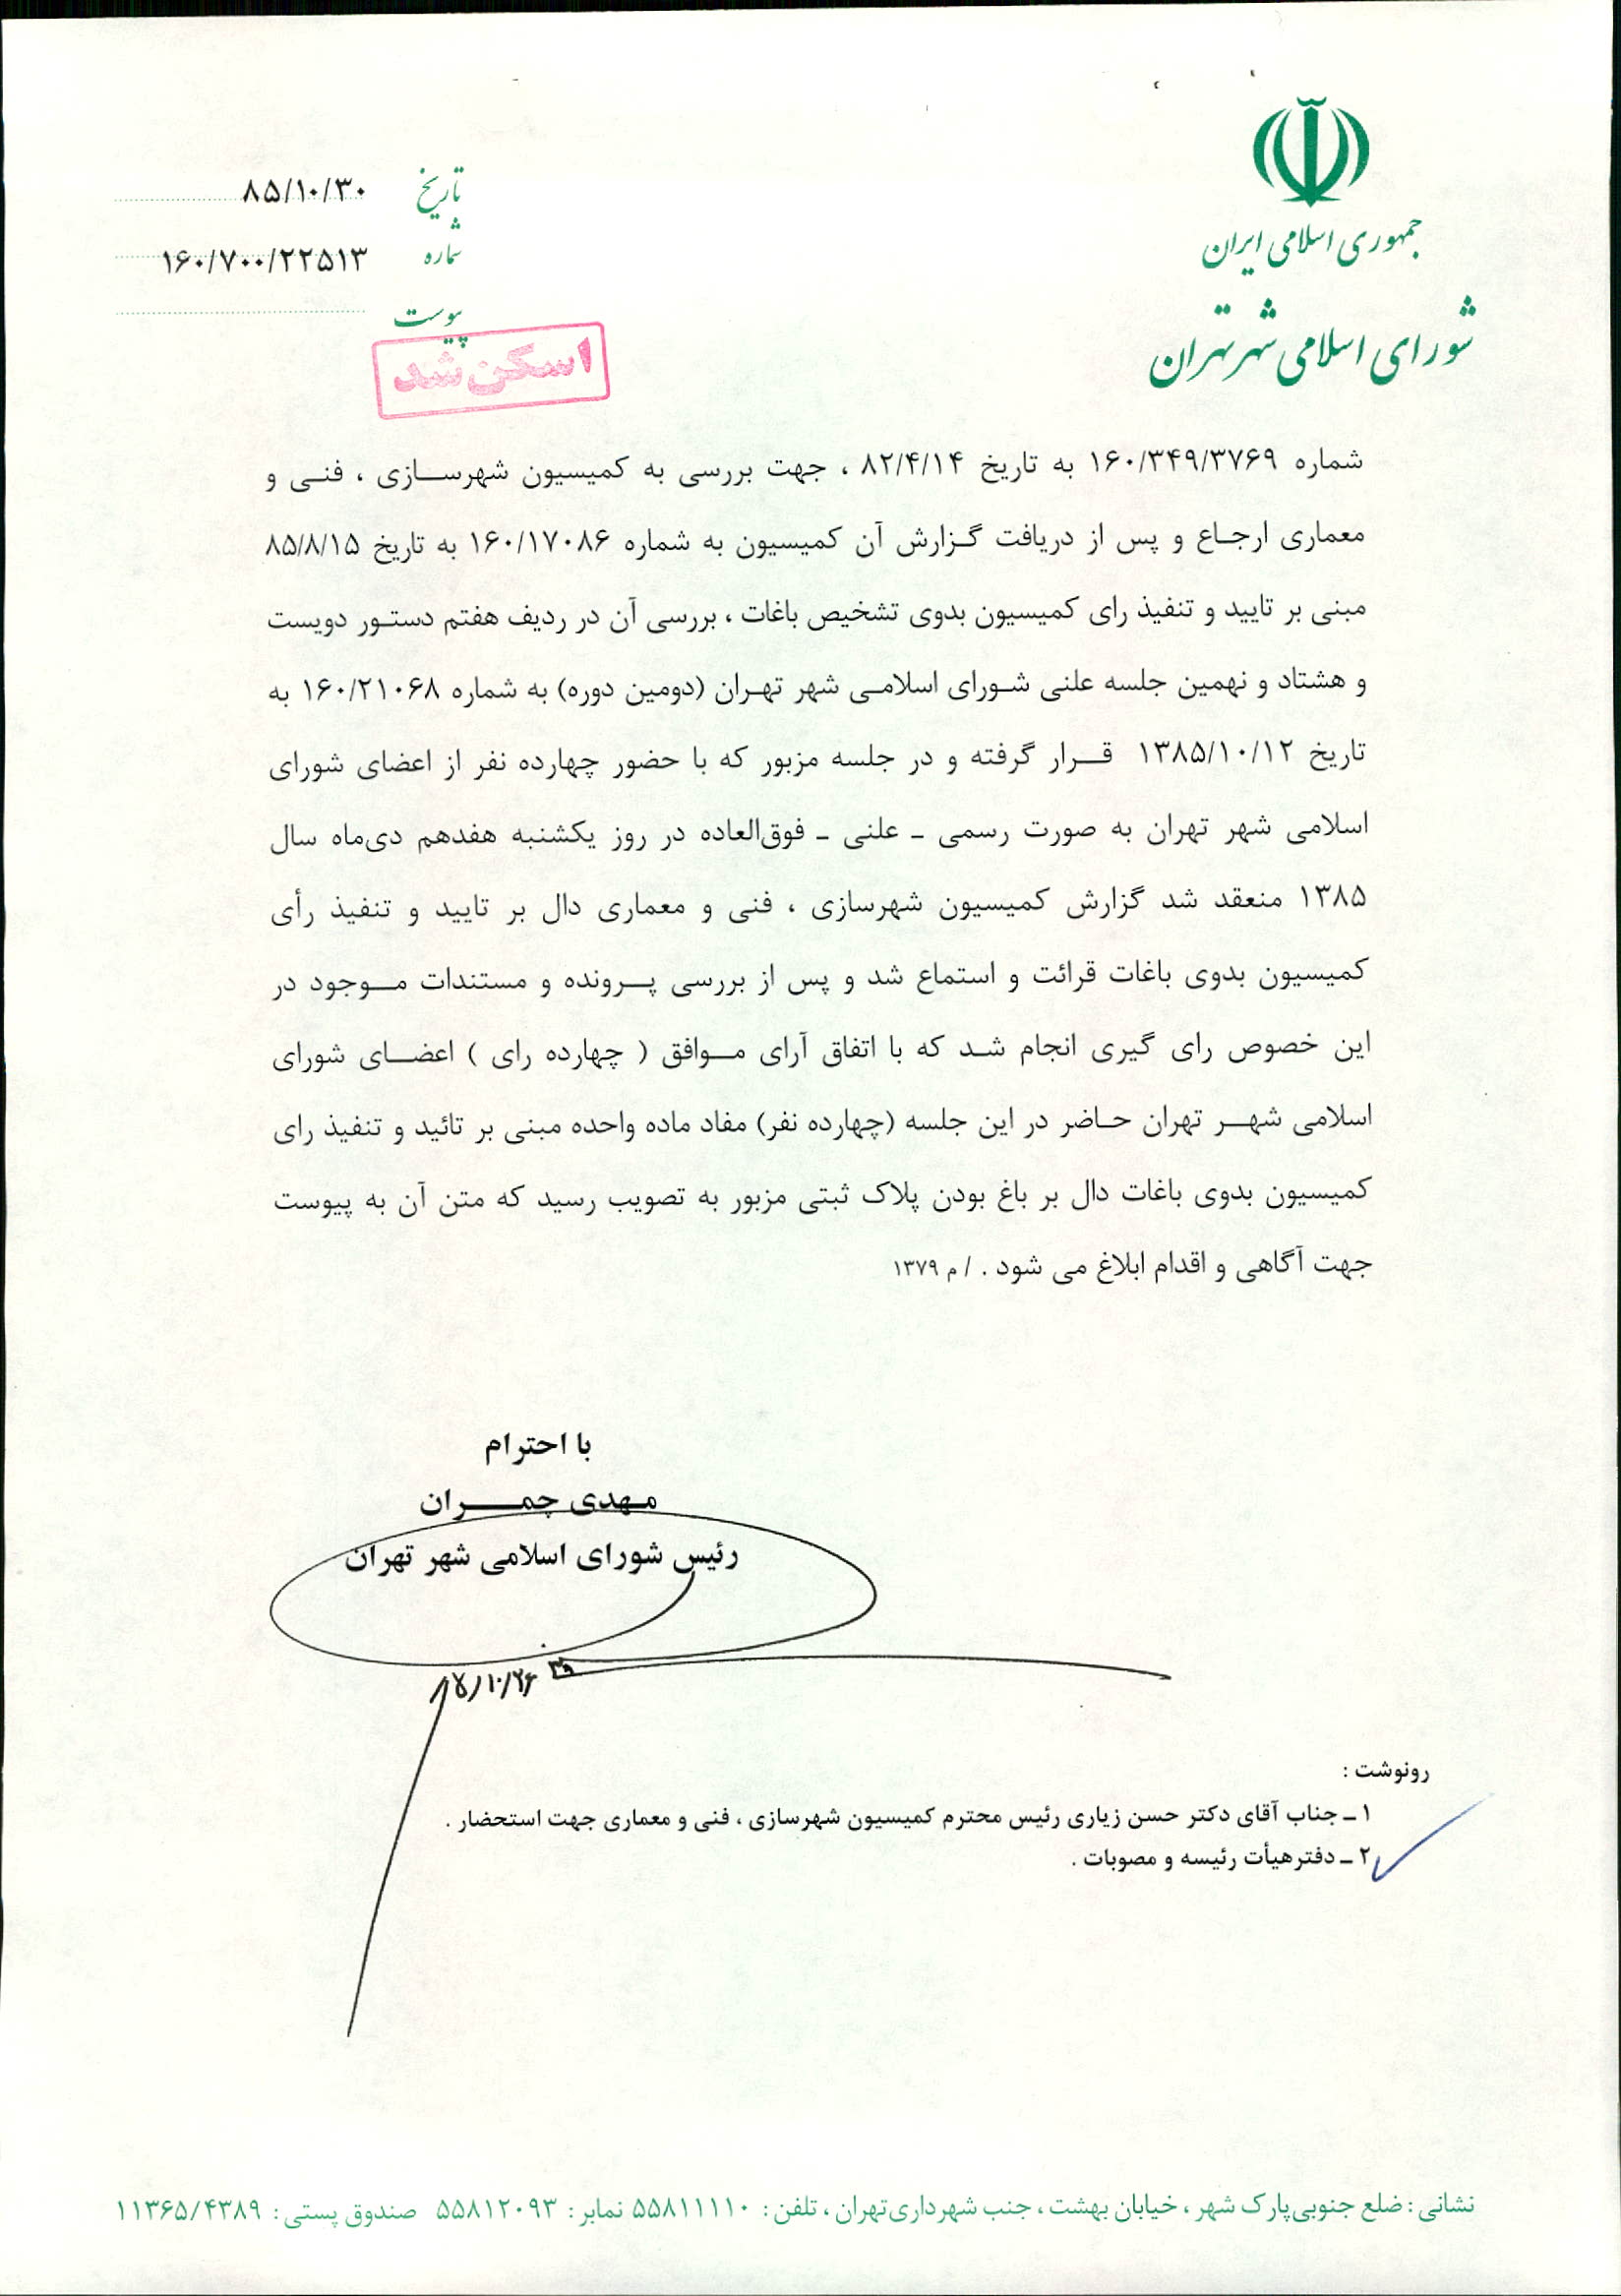 جمهوری اسلامی ایران
شورای اسلامی شهر تهران
تاریخ ۸۵/۱۰/۳۰
شماره ۱۶۰/۷۰۰/۲۲۵۱۳
پیوست
اسکن شد
شماره ۱۶۰/۳۴۹/۳۷۶۹ به تاریخ ۸۲/۴/۱۴ ، جهت بررسی به کمیسیون شهرسازی ، فنی و
معماری ارجاع و پس از دریافت گزارش آن کمیسیون به شماره ۱۶۰/۱۷۰۸۶ به تاریخ ۸۵/۸/۱۵
مبنی بر تایید و تنفیذ رای کمیسیون بدوی تشخیص باغات ، بررسی آن در ردیف هفتم دستور دویست
و هشتاد و نهمین جلسه علنی شورای اسلامی شهر تهران (دومین دوره) به شماره ۱۶۰/۲۱۰۶۸ به
تاریخ ۱۳۸۵/۱۰/۱۲ قرار گرفته و در جلسه مزبور که با حضور چهارده نفر از اعضای شورای
اسلامی شهر تهران به صورت رسمی ـ علنی ـ فوق‌العاده در روز یکشنبه هفدهم دی‌ماه سال
۱۳۸۵ منعقد شد گزارش کمیسیون شهرسازی ، فنی و معماری دال بر تایید و تنفیذ رأی
کمیسیون بدوی باغات قرائت و استماع شد و پس از بررسی پرونده و مستندات موجود در
این خصوص رای گیری انجام شد که با اتفاق آرای موافق ( چهارده رای ) اعضای شورای
اسلامی شهر تهران حاضر در این جلسه (چهارده نفر) مفاد ماده واحده مبنی بر تائید و تنفیذ رای
کمیسیون بدوی باغات دال بر باغ بودن پلاک ثبتی مزبور به تصویب رسید که متن آن به پیوست
جهت آگاهی و اقدام ابلاغ می شود . / م ۱۳۷۹
با احترام
مهدی چمران
رئیس شورای اسلامی شهر تهران
رونوشت :
۱ ـ جناب آقای دکتر حسن زیاری رئیس محترم کمیسیون شهرسازی ، فنی و معماری جهت استحضار .
۲ ـ دفترهیأت رئیسه و مصوبات .
نشانی : ضلع جنوبی پارک شهر ، خیابان بهشت ، جنب شهرداری تهران ، تلفن : ۵۵۸۱۱۱۱۰ نمابر : ۵۵۸۱۲۰۹۳ صندوق پستی : ۱۱۳۶۵/۴۳۸۹